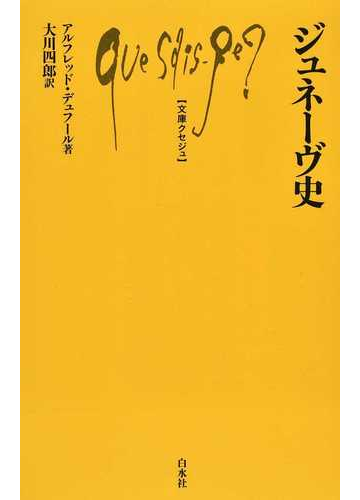 ジュネーヴ史
Que sais-je?
【文庫クセジュ】
アルフレッド・デュフール著
大川四郎訳
白水社